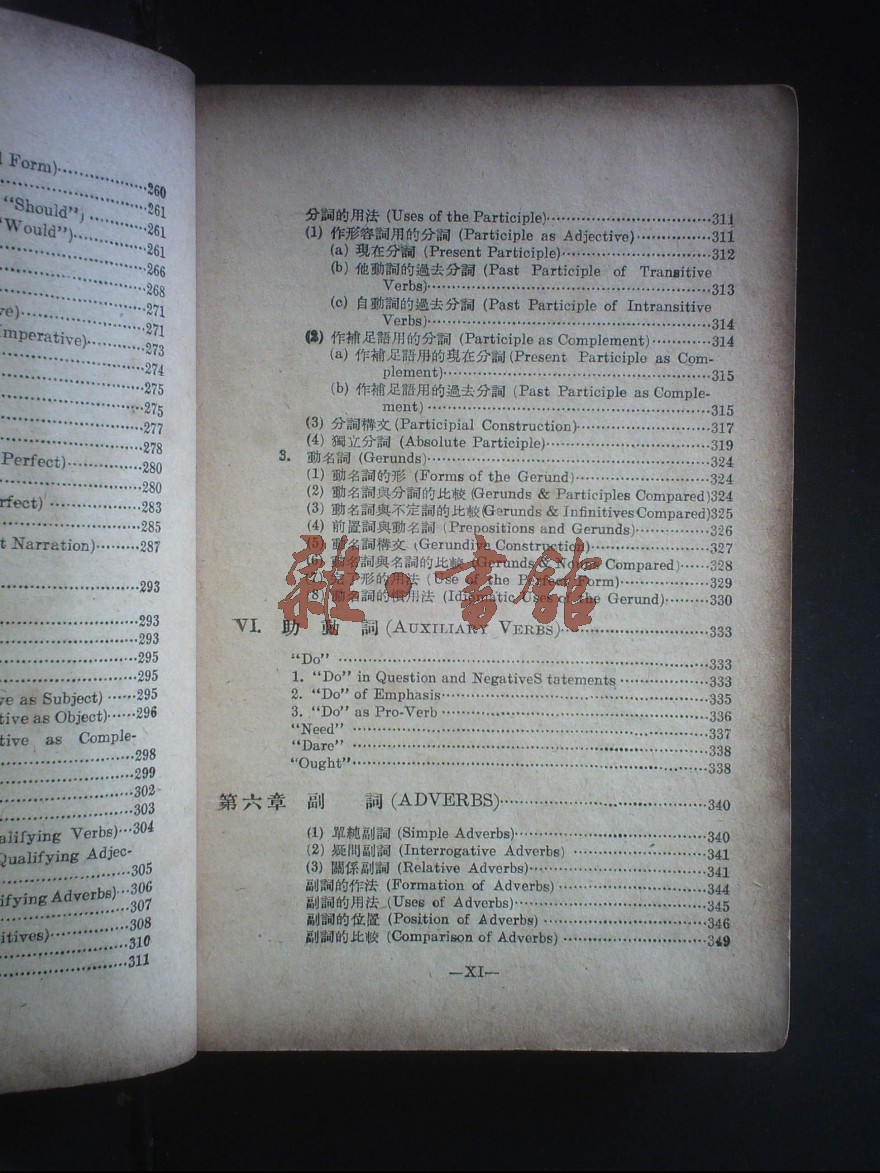 l Form)··················260
·················261
"Should") ·········261
"Would")··········261
··················266
··················268
ve)··················271
··················271
Imperative)·······273
··················274
··················275
··················275
··················277
··················278
Perfect)············280
··················280
rfect) ··············283
··················285
t Narration)·········287
··················293
··················293
··················293
··················295
··················295
ve as Subject) ······295
tive as Object)······296
tive as Comple-
··················298
··················299
··················302
··················303
alifying Verbs)···304
Qualifying Adjec-
··················305
ifying Adverbs)···306
··················307
itives)··············308
··················310
··················311
分詞的用法 (Uses of the Participle)··················311
(1) 作形容詞用的分詞 (Participle as Adjective)··············311
(a) 現在分詞 (Present Participle)··················312
(b) 他動詞的過去分詞 (Past Participle of Transitive
Verbs)··················313
(c) 自動詞的過去分詞 (Past Participle of Intransitive
Verbs)··················314
(2) 作補足語用的分詞 (Participle as Complement)············314
(a) 作補足語用的現在分詞(Present Participle as Com-
plement)··················315
(b) 作補足語用的過去分詞 (Past Participle as Comple-
ment) ··················315
(3) 分詞構文(Participial Construction)··················317
(4) 獨立分詞 (Absolute Participle)··················319
3. 動名詞 (Gerunds)··················324
(1) 動名詞的形 (Forms of the Gerund)··················324
(2) 動名詞與分詞的比較 (Gerunds & Participles Compared)324
(3) 動名詞與不定詞的比較(Gerunds & Infinitives Compared)325
(4) 前置詞與動名詞 (Prepositions and Gerunds)············326
(5) 動名詞構文 (Gerundive Construction)··················327
(6) 動名詞與名詞的比較 (Gerunds & Nouns Compared)······328
(7) 完了形的用法 (Use of the Perfect Form)··············329
(8) 動名詞的慣用法 (Idiomatic Uses of the Gerund)·········330
VI. 助動詞 (AUXILIARY VERBS)··················333
"Do" ··················333
1. "Do" in Question and NegativeS tatements ············333
2. "Do" of Emphasis··················335
3. "Do" as Pro-Verb ··················336
"Need" ··················337
"Dare" ··················338
"Ought"··················338
第六章 副詞 (ADVERBS)··················340
(1) 單純副詞 (Simple Adverbs)··················340
(2) 疑問副詞 (Interrogative Adverbs) ··················341
(3) 關係副詞 (Relative Adverbs)··················341
副詞的作法 (Formation of Adverbs) ··················344
副詞的用法 (Uses of Adverbs)··················345
副詞的位置 (Position of Adverbs) ··················346
副詞的比較 (Comparison of Adverbs) ··················349
—XI—
雜·書館